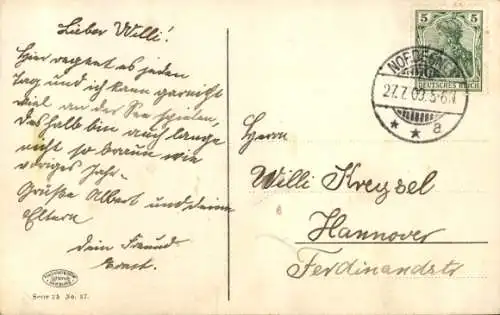 Lieber Willi!
Hier regnet es jeden
Tag und ich kann garnicht
viel an der See spielen,
deshalb bin auch lange
nicht so braun wie
voriges Jahr.
Grüße Albert und deine
Eltern
dein Freund
Ernst.
Serie 23 No. 37.
5 5
DEUTSCHES REICH
NORDERNEY
27.7.09.5-6N
* * a
Herrn
Willi Kreysel
Hannover
Ferdinandstr